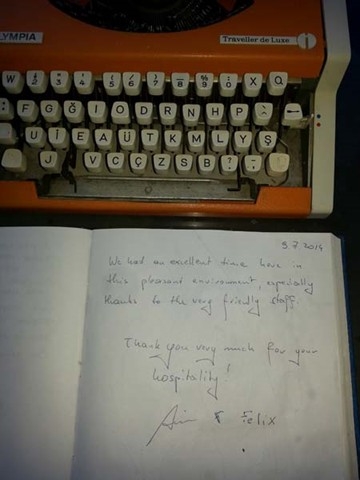 OLYMPIA
Traveller de Luxe
W 2 3 4 5 6 7 8 9 0 X Q
F G Ğ I O D R N H P
U İ E A Ü T K M L Y Ş
J V C Ç Z S B
7 2014
We had an excellent time here in
this pleasant environment, especially
thanks to the very friendly staff.
Thank you very much for your
hospitality!
& Felix